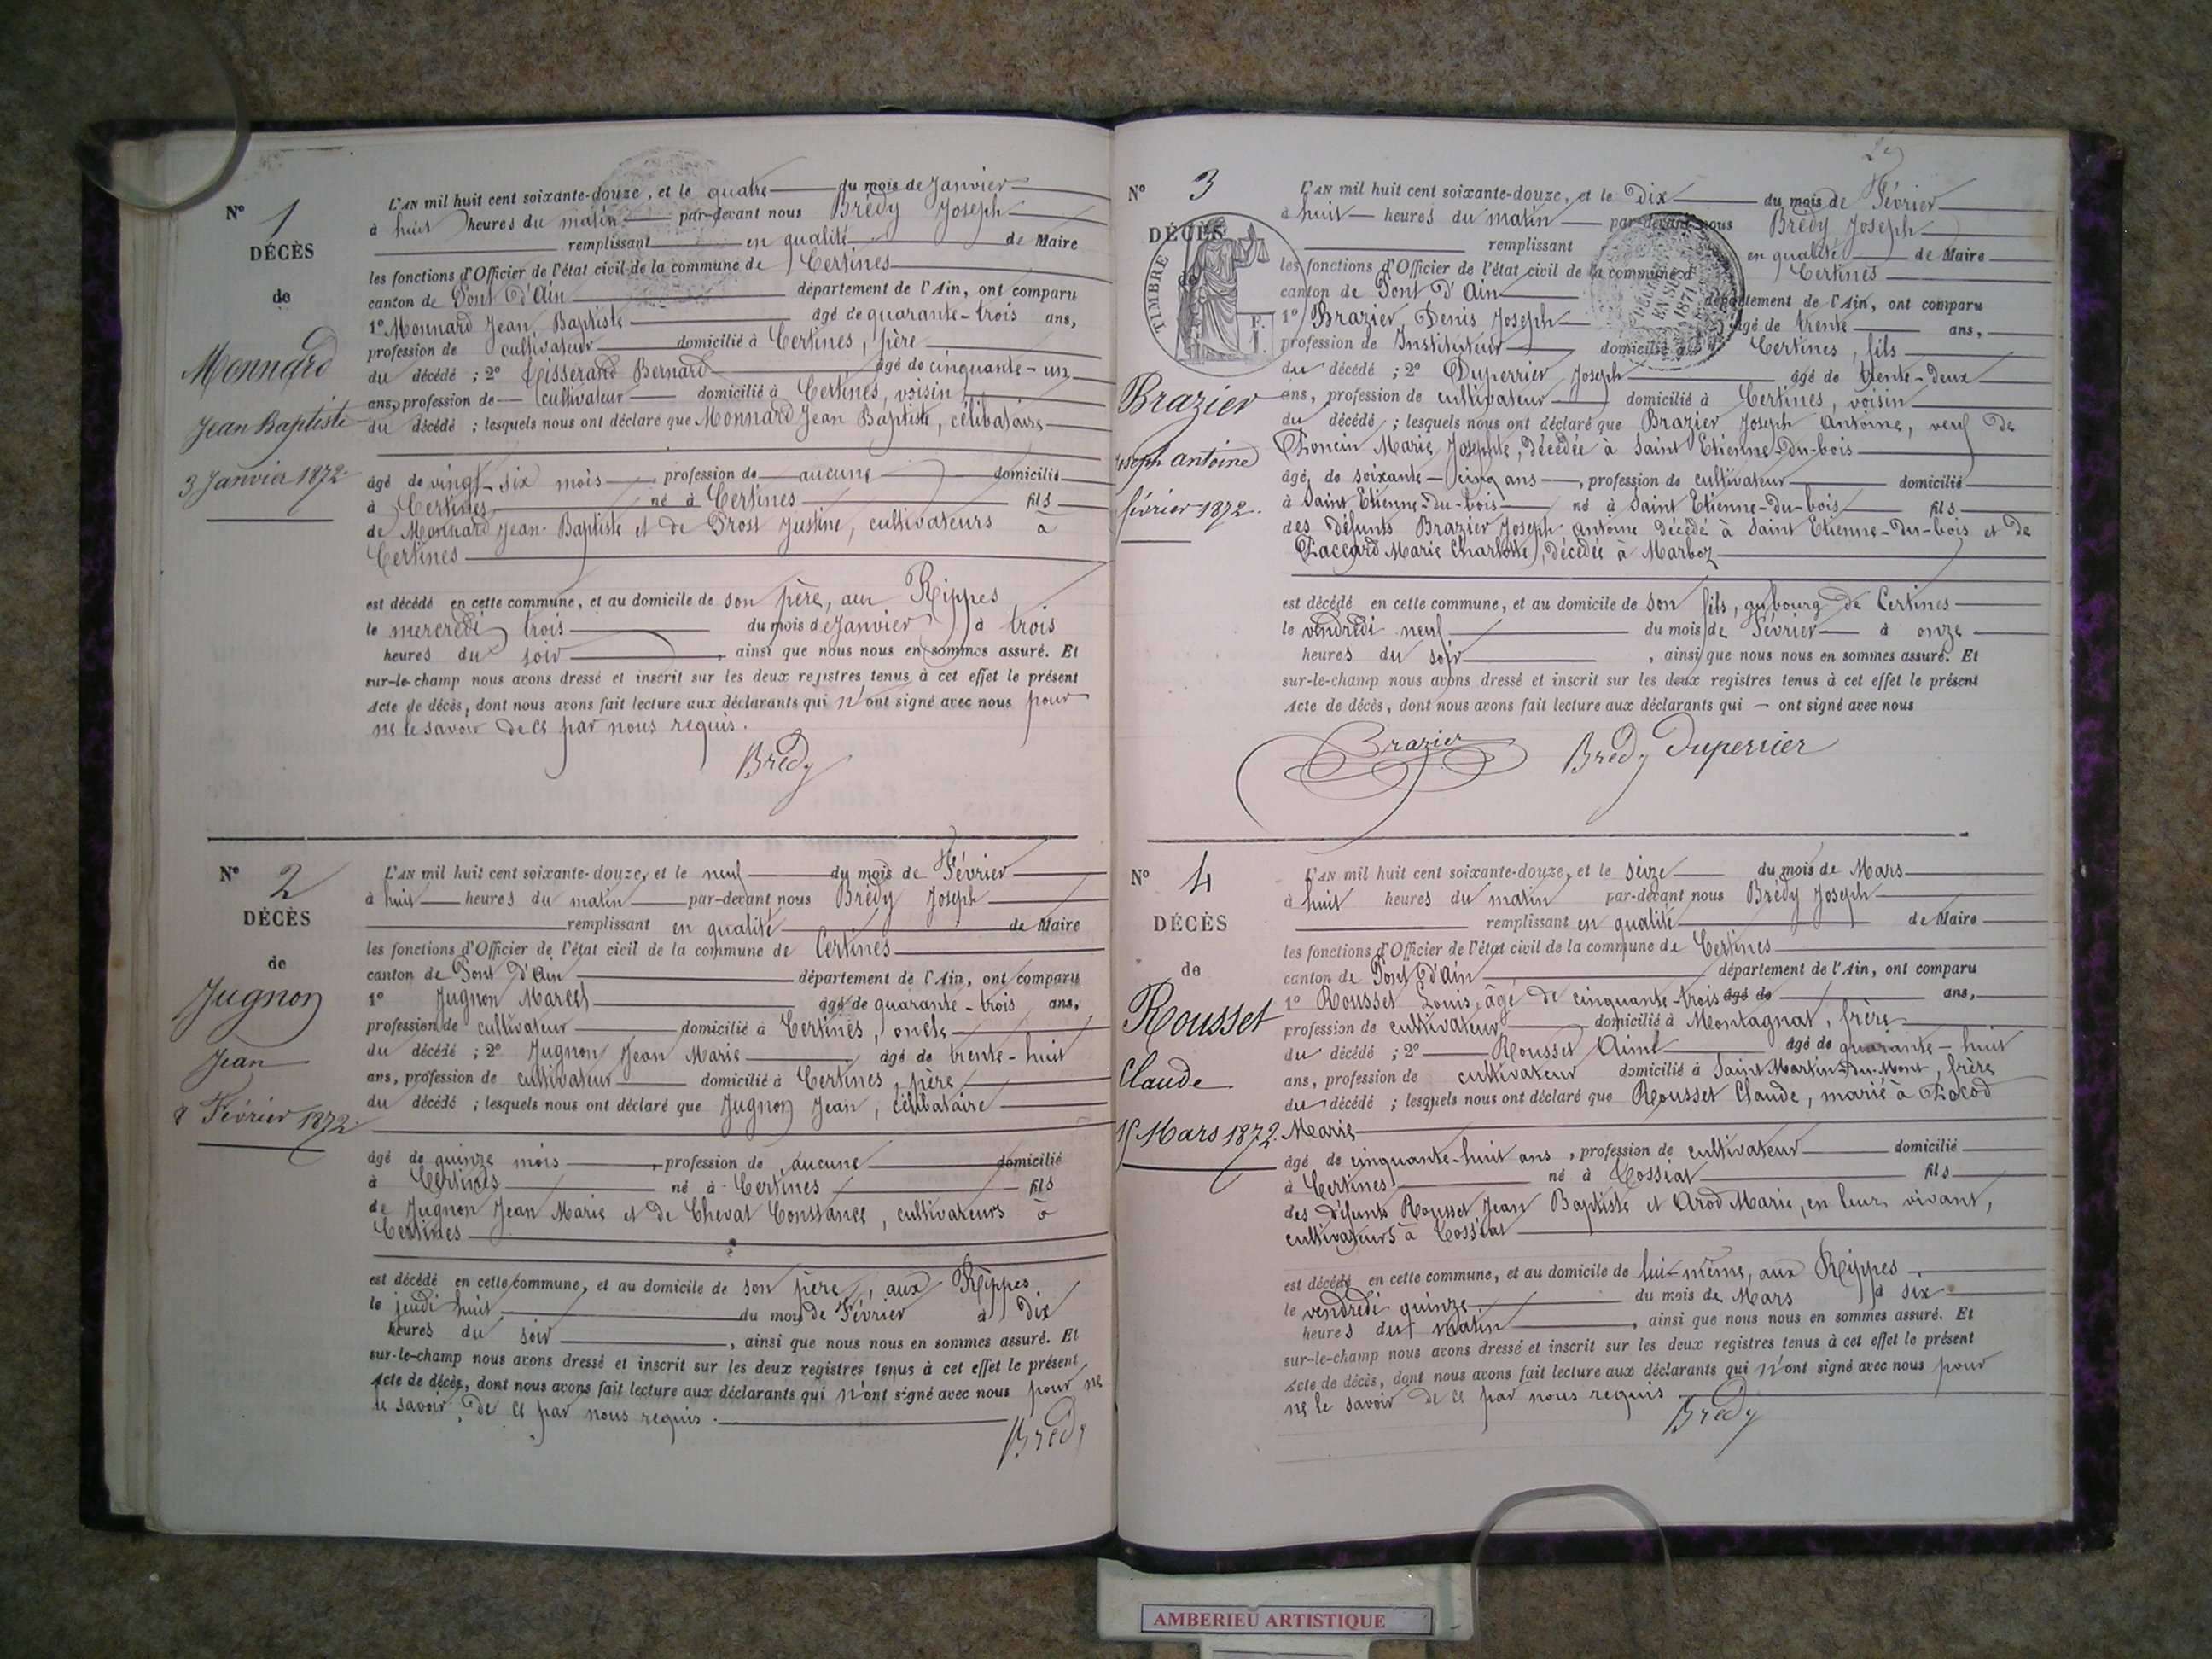 N° 1
DÉCÈS
de
Monnard
Jean Baptiste
3 Janvier 1872
L'AN mil huit cent soixante-douze, et le quatre du mois de Janvier
à huit heures du matin par-devant nous Brédy Joseph
remplissant en qualité de Maire
les fonctions d'Officier de l'état civil de la commune de Certines
canton de Pont d'Ain département de l'Ain, ont comparu
1° Monnard Jean Baptiste âgé de quarante-trois ans,
profession de cultivateur domicilié à Certines, père
du décédé ; 2° Tisserand Bernard âgé de cinquante-un
ans, profession de cultivateur domicilié à Certines, voisin
du décédé ; lesquels nous ont déclaré que Monnard Jean Baptiste, célibataire
âgé de vingt-six mois profession de aucune domicilié
à Certines né à Certines fils
de Monnard Jean-Baptiste et de Prost Justine, cultivateurs à
Certines
est décédé en cette commune, et au domicile de son père, aux Rippes
le mercredi trois du mois de Janvier à trois
heures du soir, ainsi que nous nous en sommes assuré. Et
sur-le-champ nous avons dressé et inscrit sur les deux registres tenus à cet effet le présent
Acte de décès, dont nous avons fait lecture aux déclarants qui n'ont signé avec nous pour
ne le savoir de ce par nous requis.
Brédy
N° 2
DÉCÈS
de
Jugnon
Jean
8 Février 1872
L'AN mil huit cent soixante-douze, et le neuf du mois de Février
à huit heures du matin par-devant nous Brédy Joseph
remplissant en qualité de Maire
les fonctions d'Officier de l'état civil de la commune de Certines
canton de Pont d'Ain département de l'Ain, ont comparu
1° Jugnon Marcel âgé de quarante-trois ans,
profession de cultivateur domicilié à Certines, oncle
du décédé ; 2° Jugnon Jean Marie âgé de trente-huit
ans, profession de cultivateur domicilié à Certines, père
du décédé ; lesquels nous ont déclaré que Jugnon Jean, célibataire
âgé de quinze mois, profession de aucune domicilié
à Certines né à Certines fils
de Jugnon Jean Marie et de Chevat Constance, cultivateurs à
Certines
est décédé en cette commune, et au domicile de son père, aux Rippes
le jeudi huit du mois de Février à dix
heures du soir, ainsi que nous nous en sommes assuré. Et
sur-le-champ nous avons dressé et inscrit sur les deux registres tenus à cet effet le présent
Acte de décès, dont nous avons fait lecture aux déclarants qui n'ont signé avec nous pour ne
le savoir, de ce par nous requis.
Brédy
N° 3
DÉCÈS
de
TIMBRE
Brazier
Joseph antoine
février 1872.
L'AN mil huit cent soixante-douze, et le Dix du mois de Février
à huit heures du matin par-devant nous Brédy Joseph
remplissant en qualité de Maire
les fonctions d'Officier de l'état civil de la commune d Certines
canton de Pont d'Ain département de l'Ain, ont comparu
1° Brazier Denis Joseph âgé de trente ans,
profession de Instituteur domicilié à Certines, fils
du décédé ; 2° Duperrier Joseph âgé de trente-deux
ans, profession de cultivateur domicilié à Certines, voisin
du décédé ; lesquels nous ont déclaré que Brazier Joseph Antoine, veuf de
Poncin Marie Josephte, décédée à Saint Etienne-du-bois
âgé de soixante-cinq ans, profession de cultivateur domicilié
à Saint Etienne-du-bois né à Saint Etienne-du-bois fils
des défunts Brazier Joseph antoine décédé à Saint Etienne-du-bois et de
Paccard Marie Charlotte, décédée à Marboz
est décédé en cette commune, et au domicile de son fils, au bourg de Certines
le vendredi neuf du mois de Février à onze
heures du soir, ainsi que nous nous en sommes assuré. Et
sur-le-champ nous avons dressé et inscrit sur les deux registres tenus à cet effet le présent
Acte de décès, dont nous avons fait lecture aux déclarants qui — ont signé avec nous
Brazier Brédy Duperrier
N° 4
DÉCÈS
de
Rousset
Claude
15 Mars 1872.
L'AN mil huit cent soixante-douze, et le seize du mois de Mars
à huit heures du matin par-devant nous Brédy Joseph
remplissant en qualité de Maire
les fonctions d'Officier de l'état civil de la commune de Certines
canton de Pont d'Ain département de l'Ain, ont comparu
1° Rousset Louis, âgé de cinquante-trois âgé de ans,
profession de cultivateur domicilié à Montagnat, frère
du décédé ; 2° Rousset Aimé âgé de quarante-huit
ans, profession de cultivateur domicilié à Saint Martin-du-Mont, frère
du décédé ; lesquels nous ont déclaré que Rousset Claude, marié à
Marie
âgé de cinquante-huit ans, profession de cultivateur domicilié
à Certines né à Tossiat fils
des défunts Rousset Jean Baptiste et Arod Marie, en leur vivant,
cultivateurs à Tossiat
est décédé en cette commune, et au domicile de lui-même, aux Rippes
le vendredi quinze du mois de Mars à six
heures du matin, ainsi que nous nous en sommes assuré. Et
sur-le-champ nous avons dressé et inscrit sur les deux registres tenus à cet effet le présent
Acte de décès, dont nous avons fait lecture aux déclarants qui n'ont signé avec nous pour
ne le savoir de ce par nous requis
Brédy
AMBERIEU ARTISTIQUE